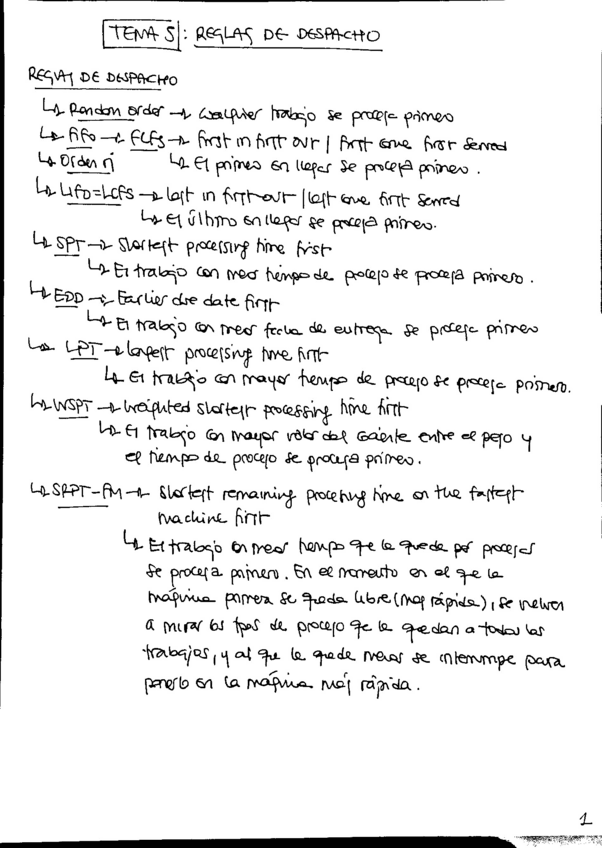 TEMA 5: REGLAS DE DESPACHO
REGLAS DE DESPACHO
↳ Random order → cualquier trabajo se procesa primero
↳ FIFO → FCFS → first in first out / first come first served
↳ Orden rj ↳ El primero en llegar se procesa primero.
↳ LIFO=LCFS → last in first out / last come first served
↳ El último en llegar se procesa primero.
↳ SPT → Shortest processing time first
↳ El trabajo con menor tiempo de proceso se procesa primero.
↳ EDD → Earlier due date first
↳ El trabajo con menor fecha de entrega se procesa primero
↳ LPT → longest processing time first
↳ El trabajo con mayor tiempo de proceso se procesa primero.
↳ WSPT → weighted shortest processing time first
↳ El trabajo con mayor valor del cociente entre el peso y
el tiempo de proceso se procesa primero.
↳ SRPT-FM → Shortest remaining processing time on the fastest
machine first
↳ El trabajo con menor tiempo que le queda por procesar
se procesa primero. En el momento en el que la
máquina primera se queda libre (más rápida), se vuelven
a mirar los tpos de proceso que le quedan a todos los
trabajos, y al que le quede menos se interrumpe para
ponerlo en la máquina más rápida.
1